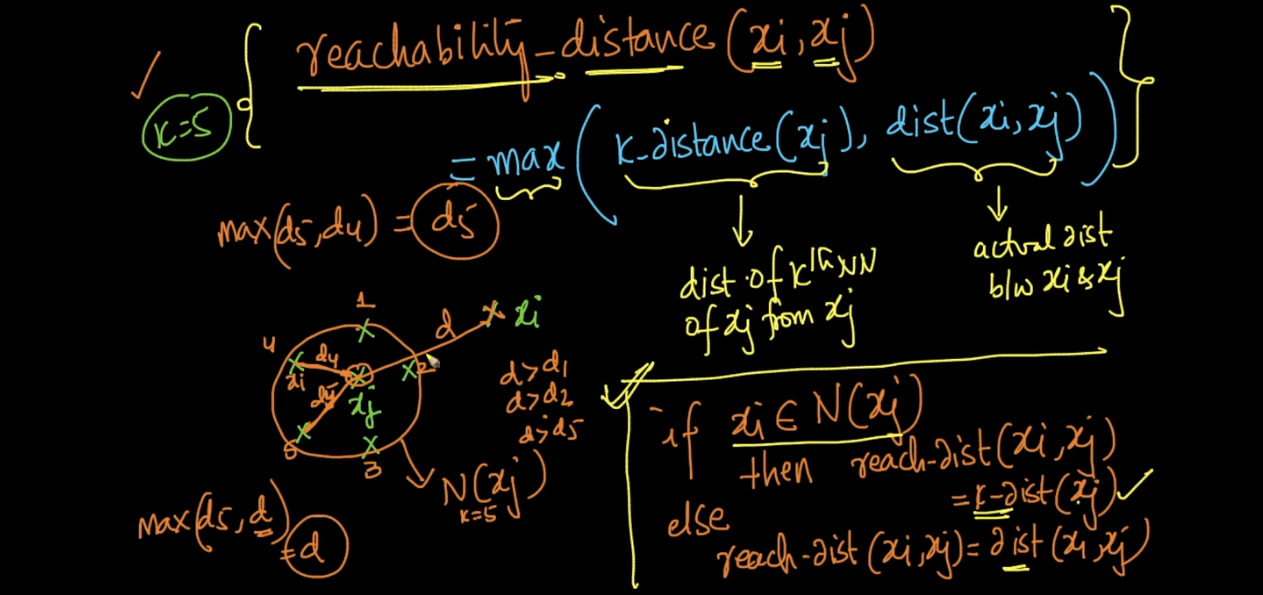 reachability-distance (xi, xj)
k=5
= max ( k-distance(xj), dist(xi, xj) )
max(d5, d4) = d5
dist of kth NN
of xj from xj
actual dist
b/w xi & xj
1
xi
d
4
d4
xi
2
xj
d5
5
3
d>d1
d>d2
d>d5
N(xj)
k=5
max(d5, d)
= d
if xi ∈ N(xj)
then reach-dist(xi, xj)
= k-dist(xj)
else
reach-dist(xi, xj) = dist(xi, xj)